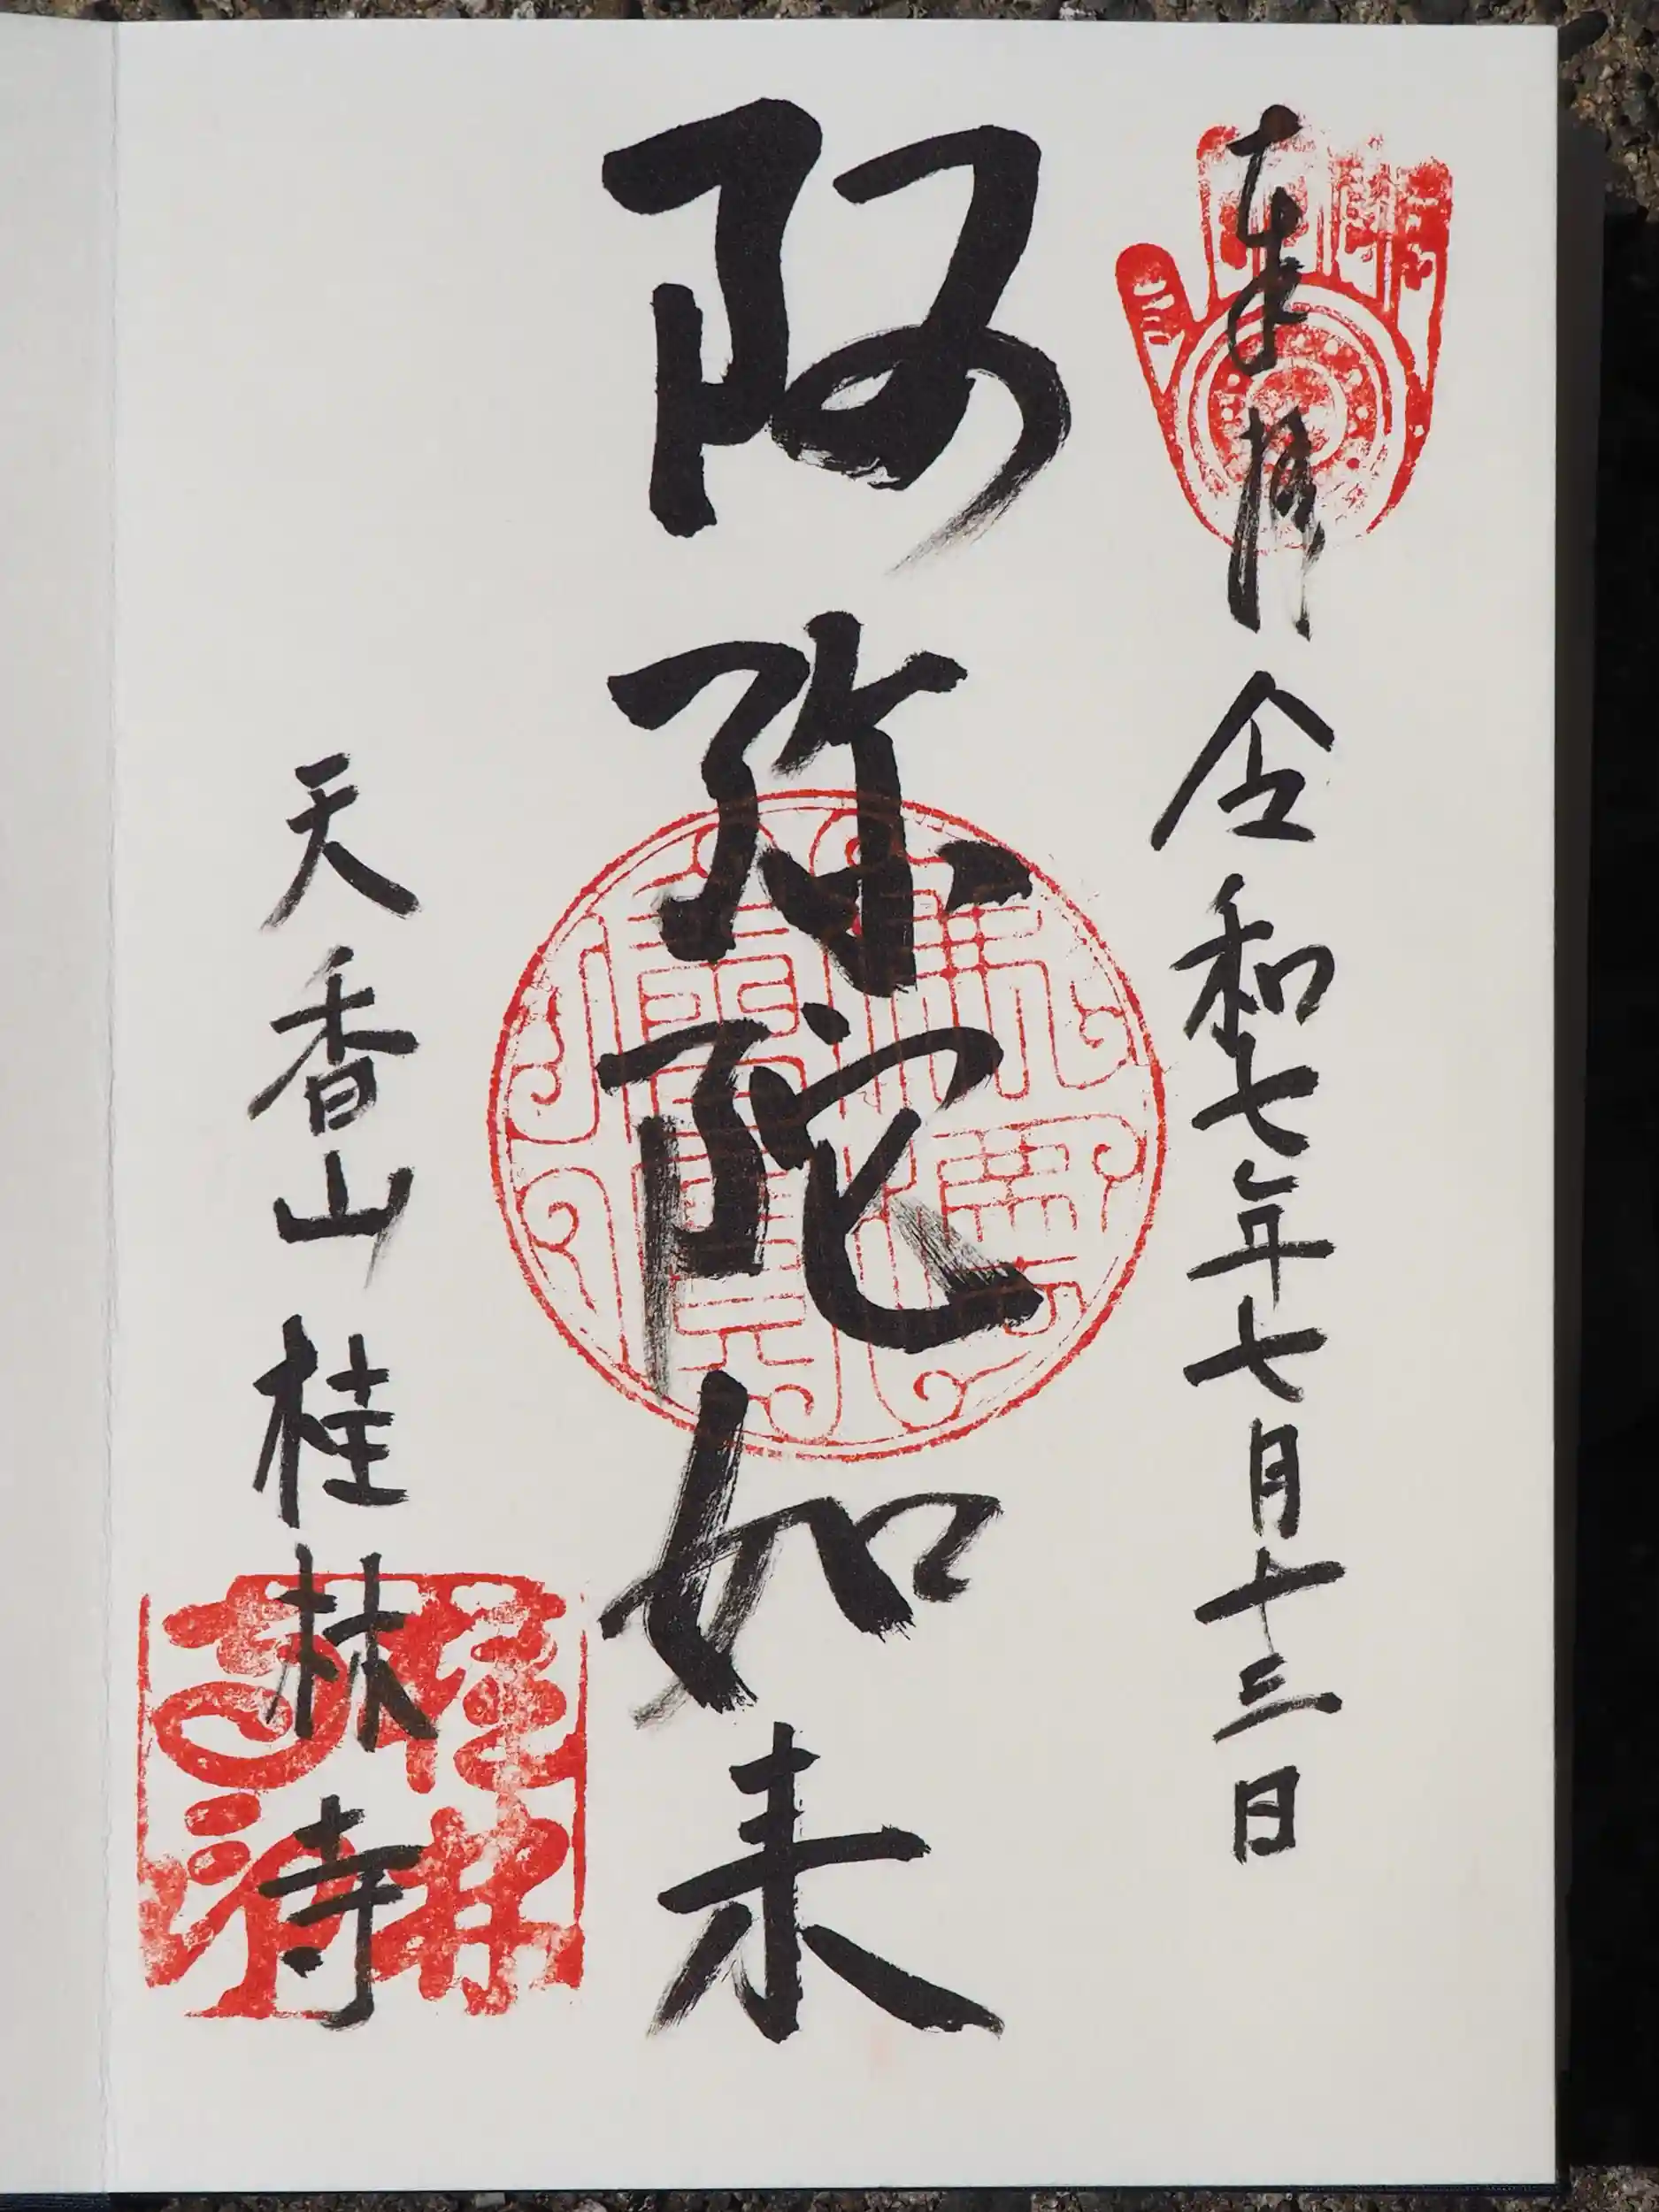 奉拝 令和七年七月十三日
阿弥陀如来
天香山 桂林寺